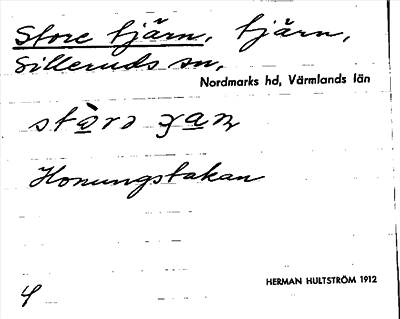 Store tjärn, tjärn,
Silleruds sn,
Nordmarks hd, Värmlands län
Honungstakan
HERMAN HULTSTRÖM 1912
4